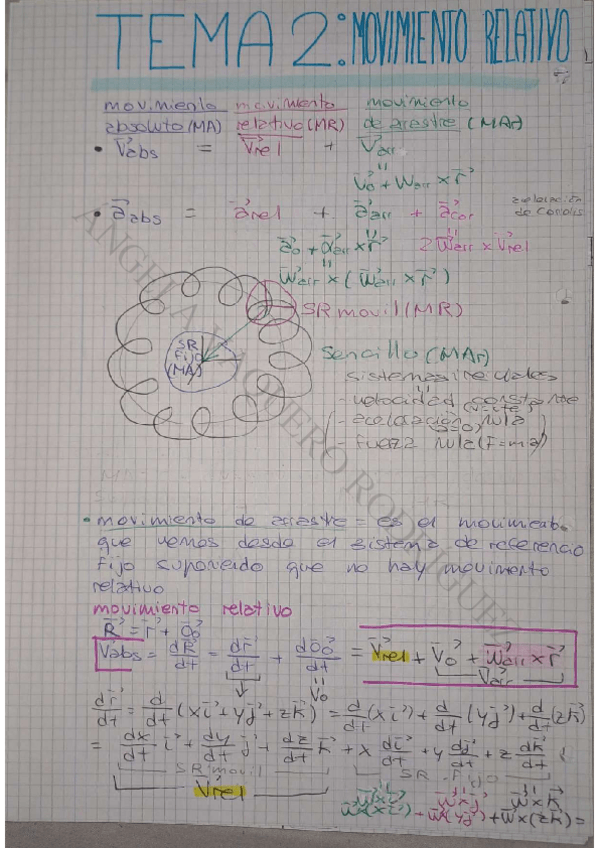 TEMA 2: MOVIMIENTO RELATIVO
movimiento movimiento movimiento
absoluto (MA) relativo (MR) de arrastre (MAr)
• V⃗abs = V⃗rel + V⃗arr
"
V⃗o + W⃗arr × r⃗
• a⃗abs = a⃗rel + a⃗arr + a⃗cor
aceleración de Coriolis
a⃗o + α⃗arr × r⃗ 2 W⃗arr × V⃗rel
W⃗arr × (W⃗arr × r⃗)
SR movil (MR)
SR
Fijo
(MA)
Sencillo (MAr)
sistemas inerciales
- velocidad constante
(v=cte)
- aceleración nula
(a=0)
- fuerza nula (F=ma)
ÁNGELA VAQUERO RODRÍGUEZ
• movimiento de arrastre = es el movimiento
que vemos desde el sistema de referencia
fijo suponiendo que no hay movimiento
relativo
movimiento relativo
R⃗ = r⃗ + OO⃗
V⃗abs = dR⃗/dt = dr⃗/dt + dOO⃗/dt = V⃗rel + V⃗o + W⃗arr × r⃗
V⃗o V⃗arr
dr⃗/dt = d/dt (xi⃗ + yj⃗ + zk⃗) = d/dt (xi⃗) + d/dt (yj⃗) + d/dt (zk⃗)
= dx/dt i⃗ + dy/dt j⃗ + dz/dt k⃗ + x di⃗/dt + y dj⃗/dt + z dk⃗/dt
SR movil SR Fijo
V⃗rel
W⃗×i⃗ W⃗×j⃗ W⃗×k⃗
W⃗×(xi⃗) + W⃗×(yj⃗) + W⃗×(zk⃗) =